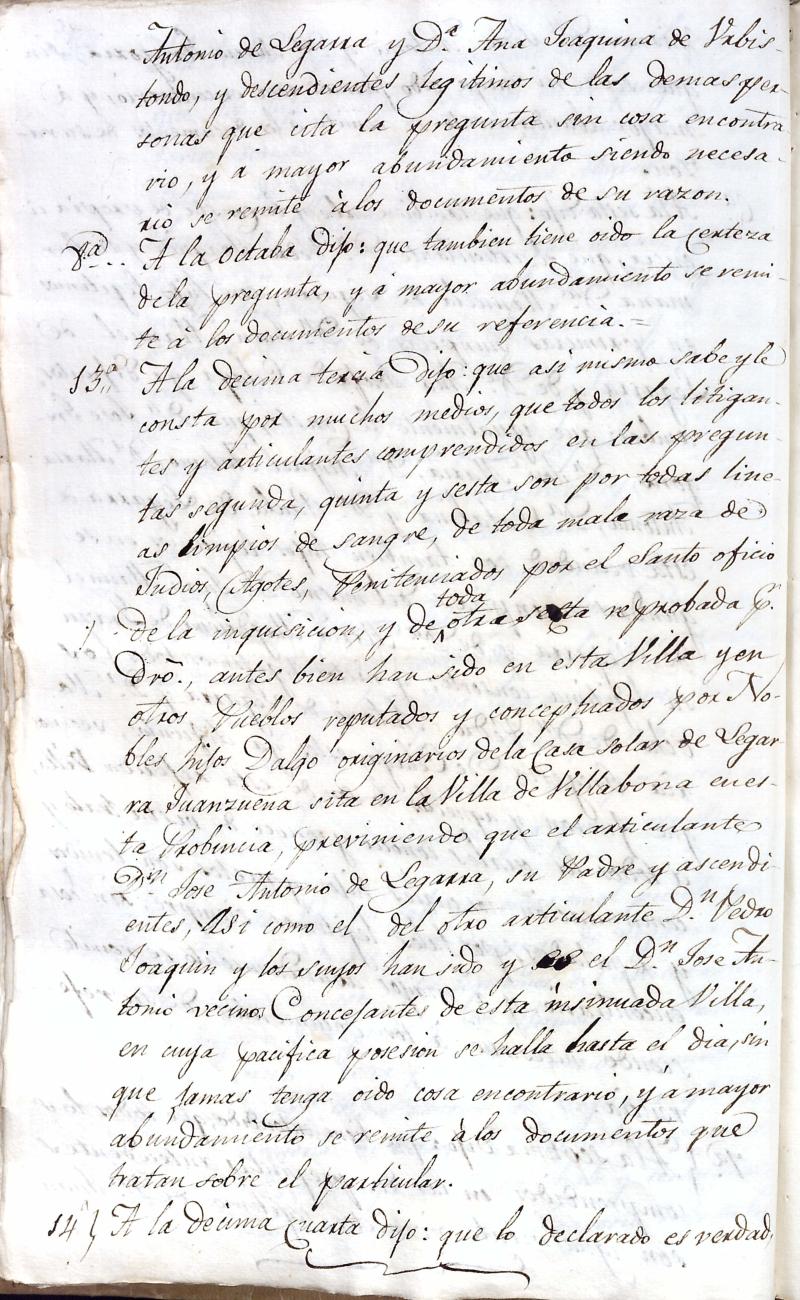 Antonio de Legarra y D.ª Ana Joaquina de Vrbis-
tondo, y descendientes legitimos de las demas per-
sonas que cita la pregunta sin cosa encontra-
rio, y á mayor abundamiento siendo necesa-
rio se remite à los documentos de su razon.
8.ª A la octaba dijo: que tambien tiene oido la certeza
dela pregunta, y á mayor abundamiento se remi-
te à los documentos de su referencia.=
13.ª A la decima tercia Dijo: que asi mismo sabe y le
consta por muchos medios, que todos los litigan-
tes y articulantes comprendidos en las pregun-
tas segunda, quinta y sesta son por todas line-
as limpios de sangre, de toda mala raza de
Judios, Agotes, Penitenciados por el Santo oficio
de la inquisicion, y de toda otra secta reprobada p.r
Dro., antes bien han sido en esta Villa y en
otros Pueblos reputados y conceptuados por No-
bles hijos Dalgo originarios dela Casa solar de Legar
ra Juanzuena sita en la Villa de Villabona en es-
ta Probincia, previniendo que el articulante
D.n Jose Antonio de Legarra, su Padre y ascendi-
entes, asi como el del otro articulante D.n Pedro
Joaquin y los suyos han sido y el D.n Jose An-
tonio vecinos Concejantes de esta insinuada Villa,
en cuya pacifica posesion se halla hasta el dia, sin
que jamas tenga oido cosa encontrario, y á mayor
abundamiento se remite à los documentos que
tratan sobre el particular.
14} A la decima cuarta dijo: que lo declarado es verdad,